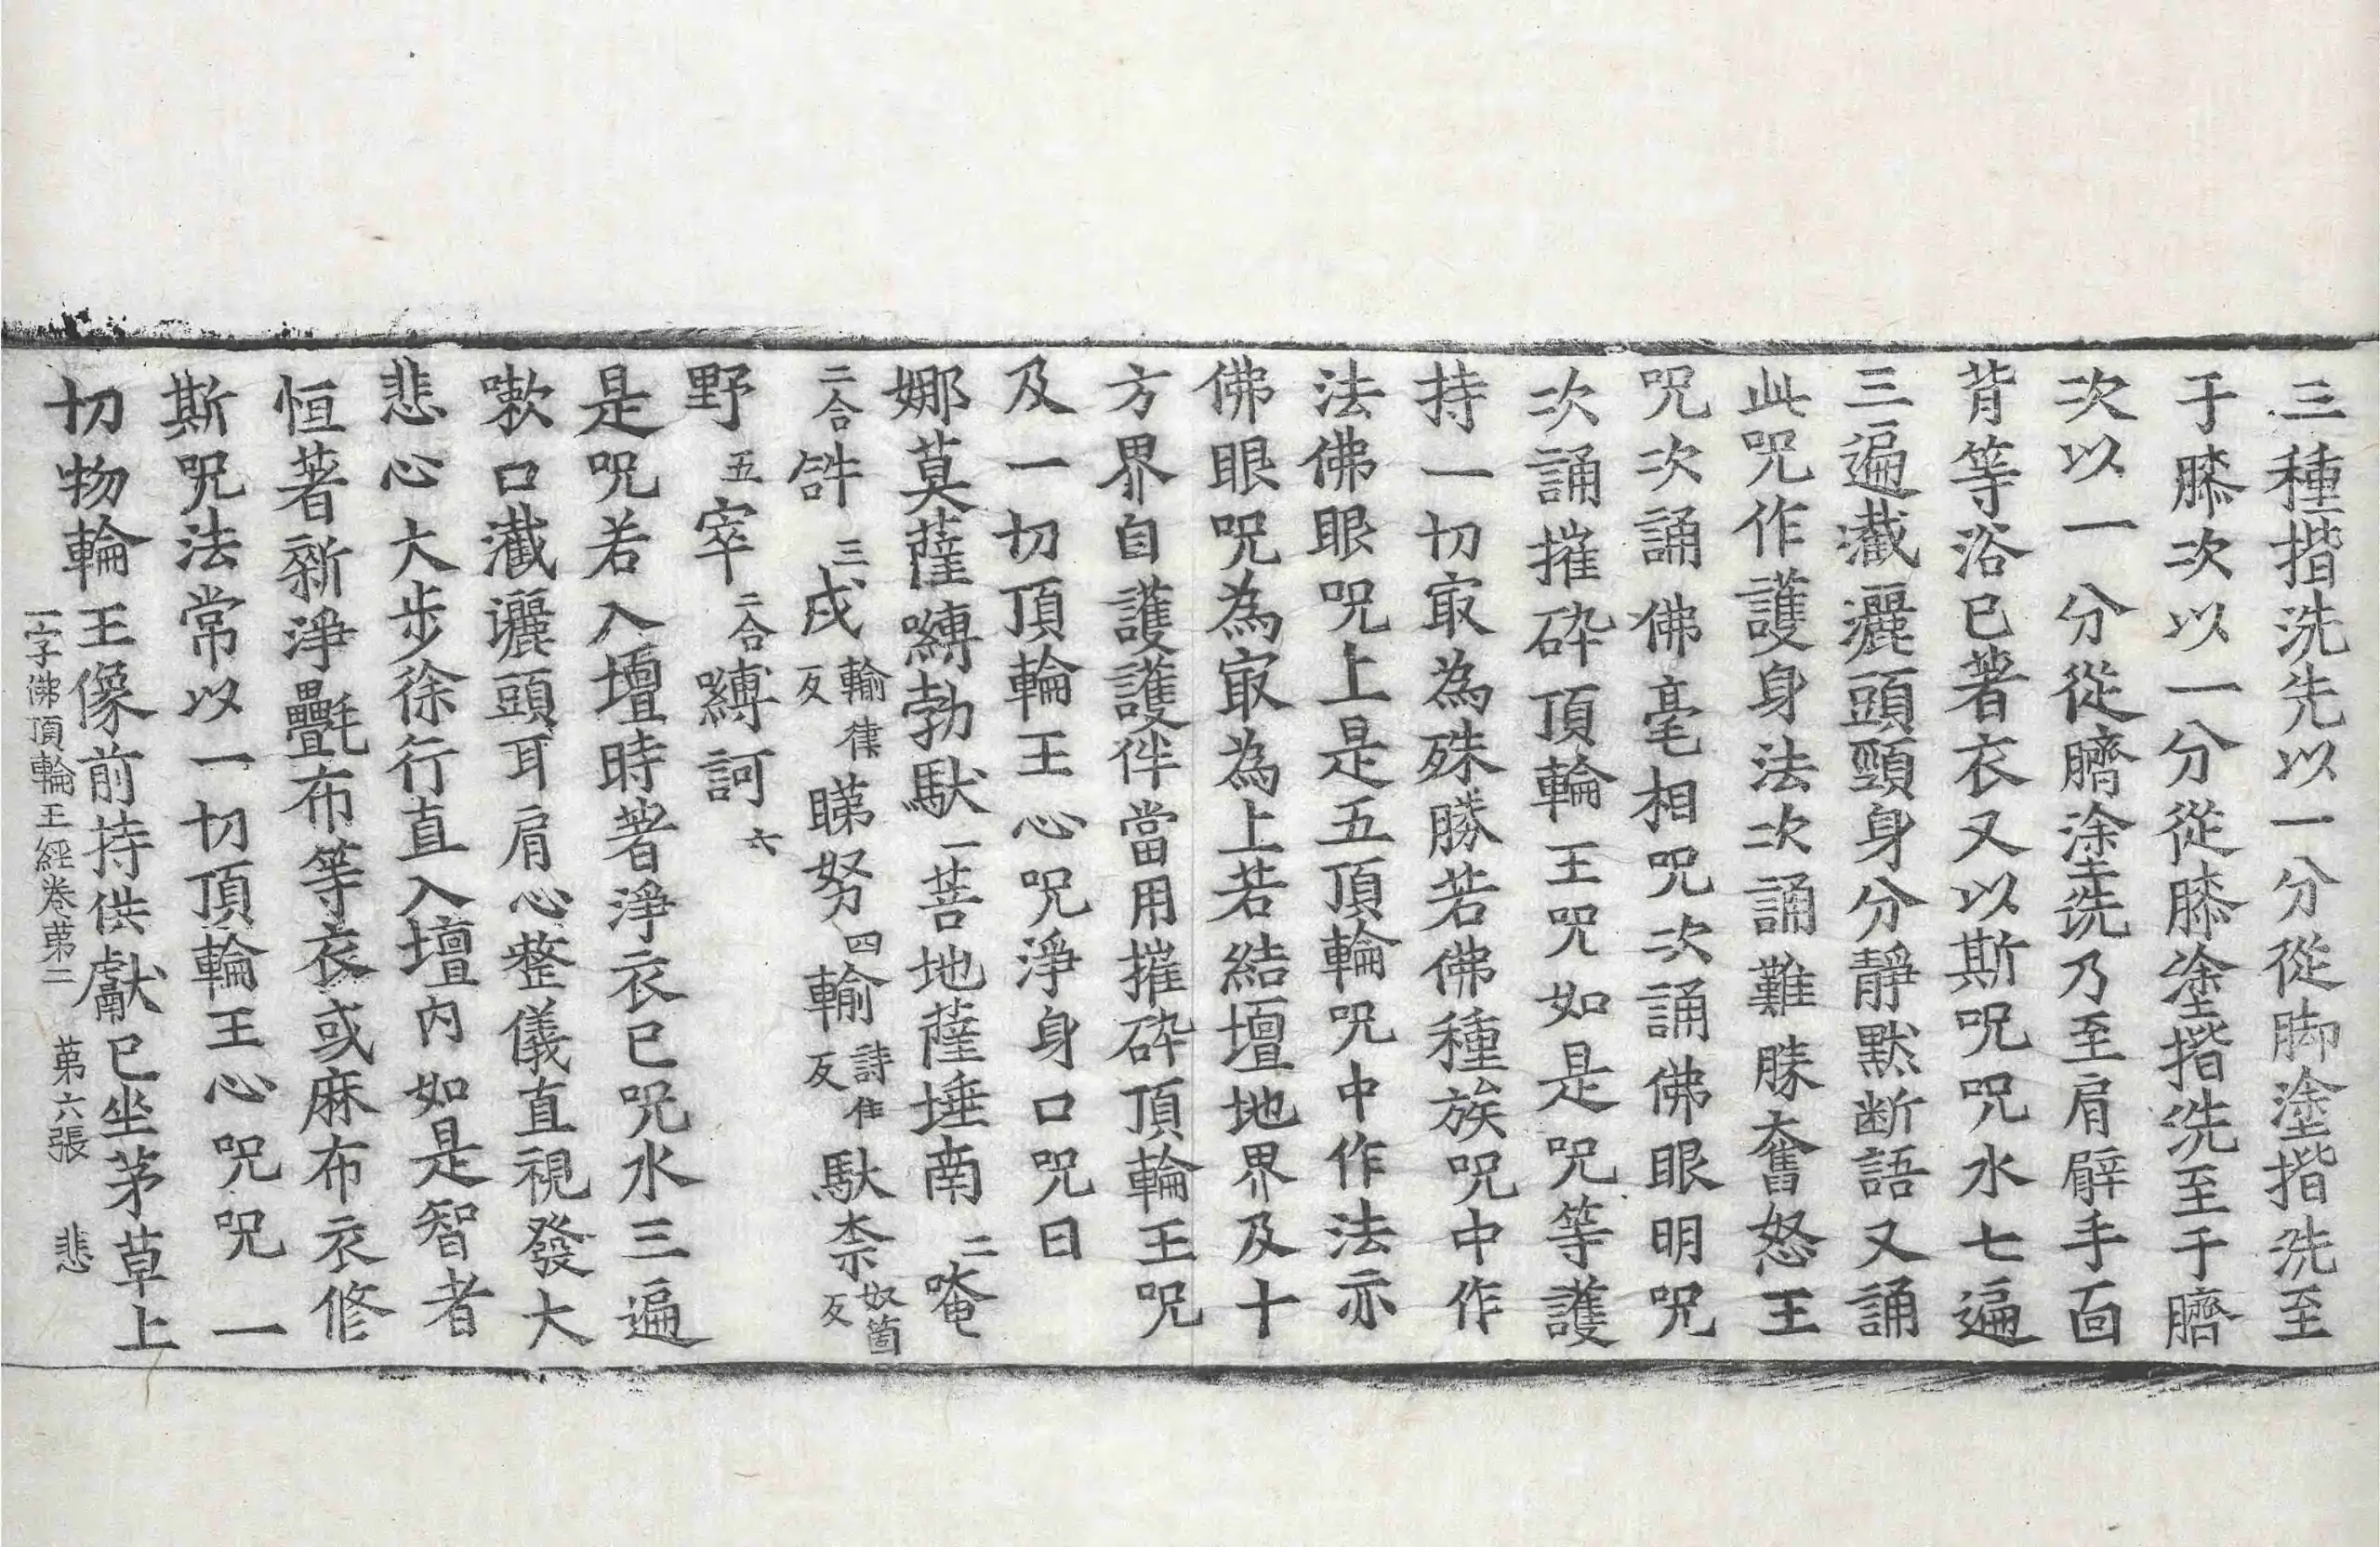 三種揩洗先以一分從脚塗揩洗至
于膝次以一分從膝塗揩洗至于臍
次以一分從臍塗洗乃至肩臂手面
背等浴已著衣又以斯呪呪水七遍
三遍瀸灑頭頸身分靜默断語又誦
此呪作護身法次誦難勝奮怒王
呪次誦佛毫相呪次誦佛眼明呪
次誦摧碎頂輪王呪如是呪等護
持一切㝡為殊勝若佛種族呪中作
法佛眼呪上是五頂輪呪中作法亦
佛眼呪為㝡為上若結壇地界及十
方界自護護伴當用摧碎頂輪王呪
及一切頂輪王心呪淨身口呪曰
娜莫薩嚩勃馱一菩地薩埵南二唵
二合㖿三戍輸律反睇努四輸詩聿反馱柰奴箇反
野五窣二合嚩訶六
是呪若入壇時著淨衣已呪水三遍
嗽口瀸灑頭耳肩心整儀直視發大
悲心大步徐行直入壇內如是智者
恒著新淨㲲布等衣或麻布衣修
斯呪法常以一切頂輪王心呪呪一
切物輪王像前持供獻已坐茅草上
一字佛頂輪王經卷苐二 苐六張 悲